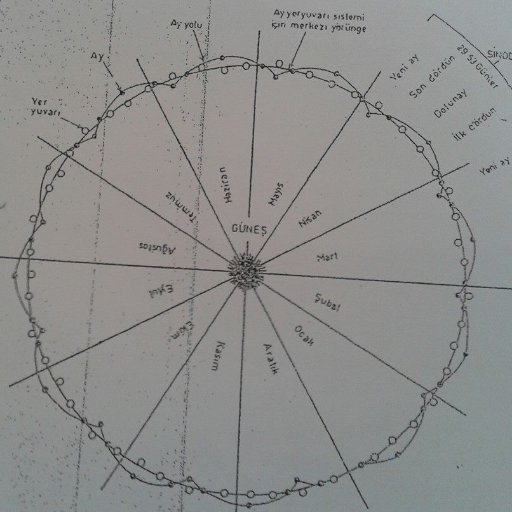 Ay yeryuvarı sistemi
için merkezi yörünge
Ay yolu
Ay
Yer
yuvarı
Yeni ay
Son dördün
29.53 Günler
Dolunay
İlk dördün
Yeni ay
Haziran
Mayıs
Temmuz
Nisan
GÜNEŞ
Ağustos
Mart
Eylül
Şubat
Ekim
Ocak
Kasım
Aralık